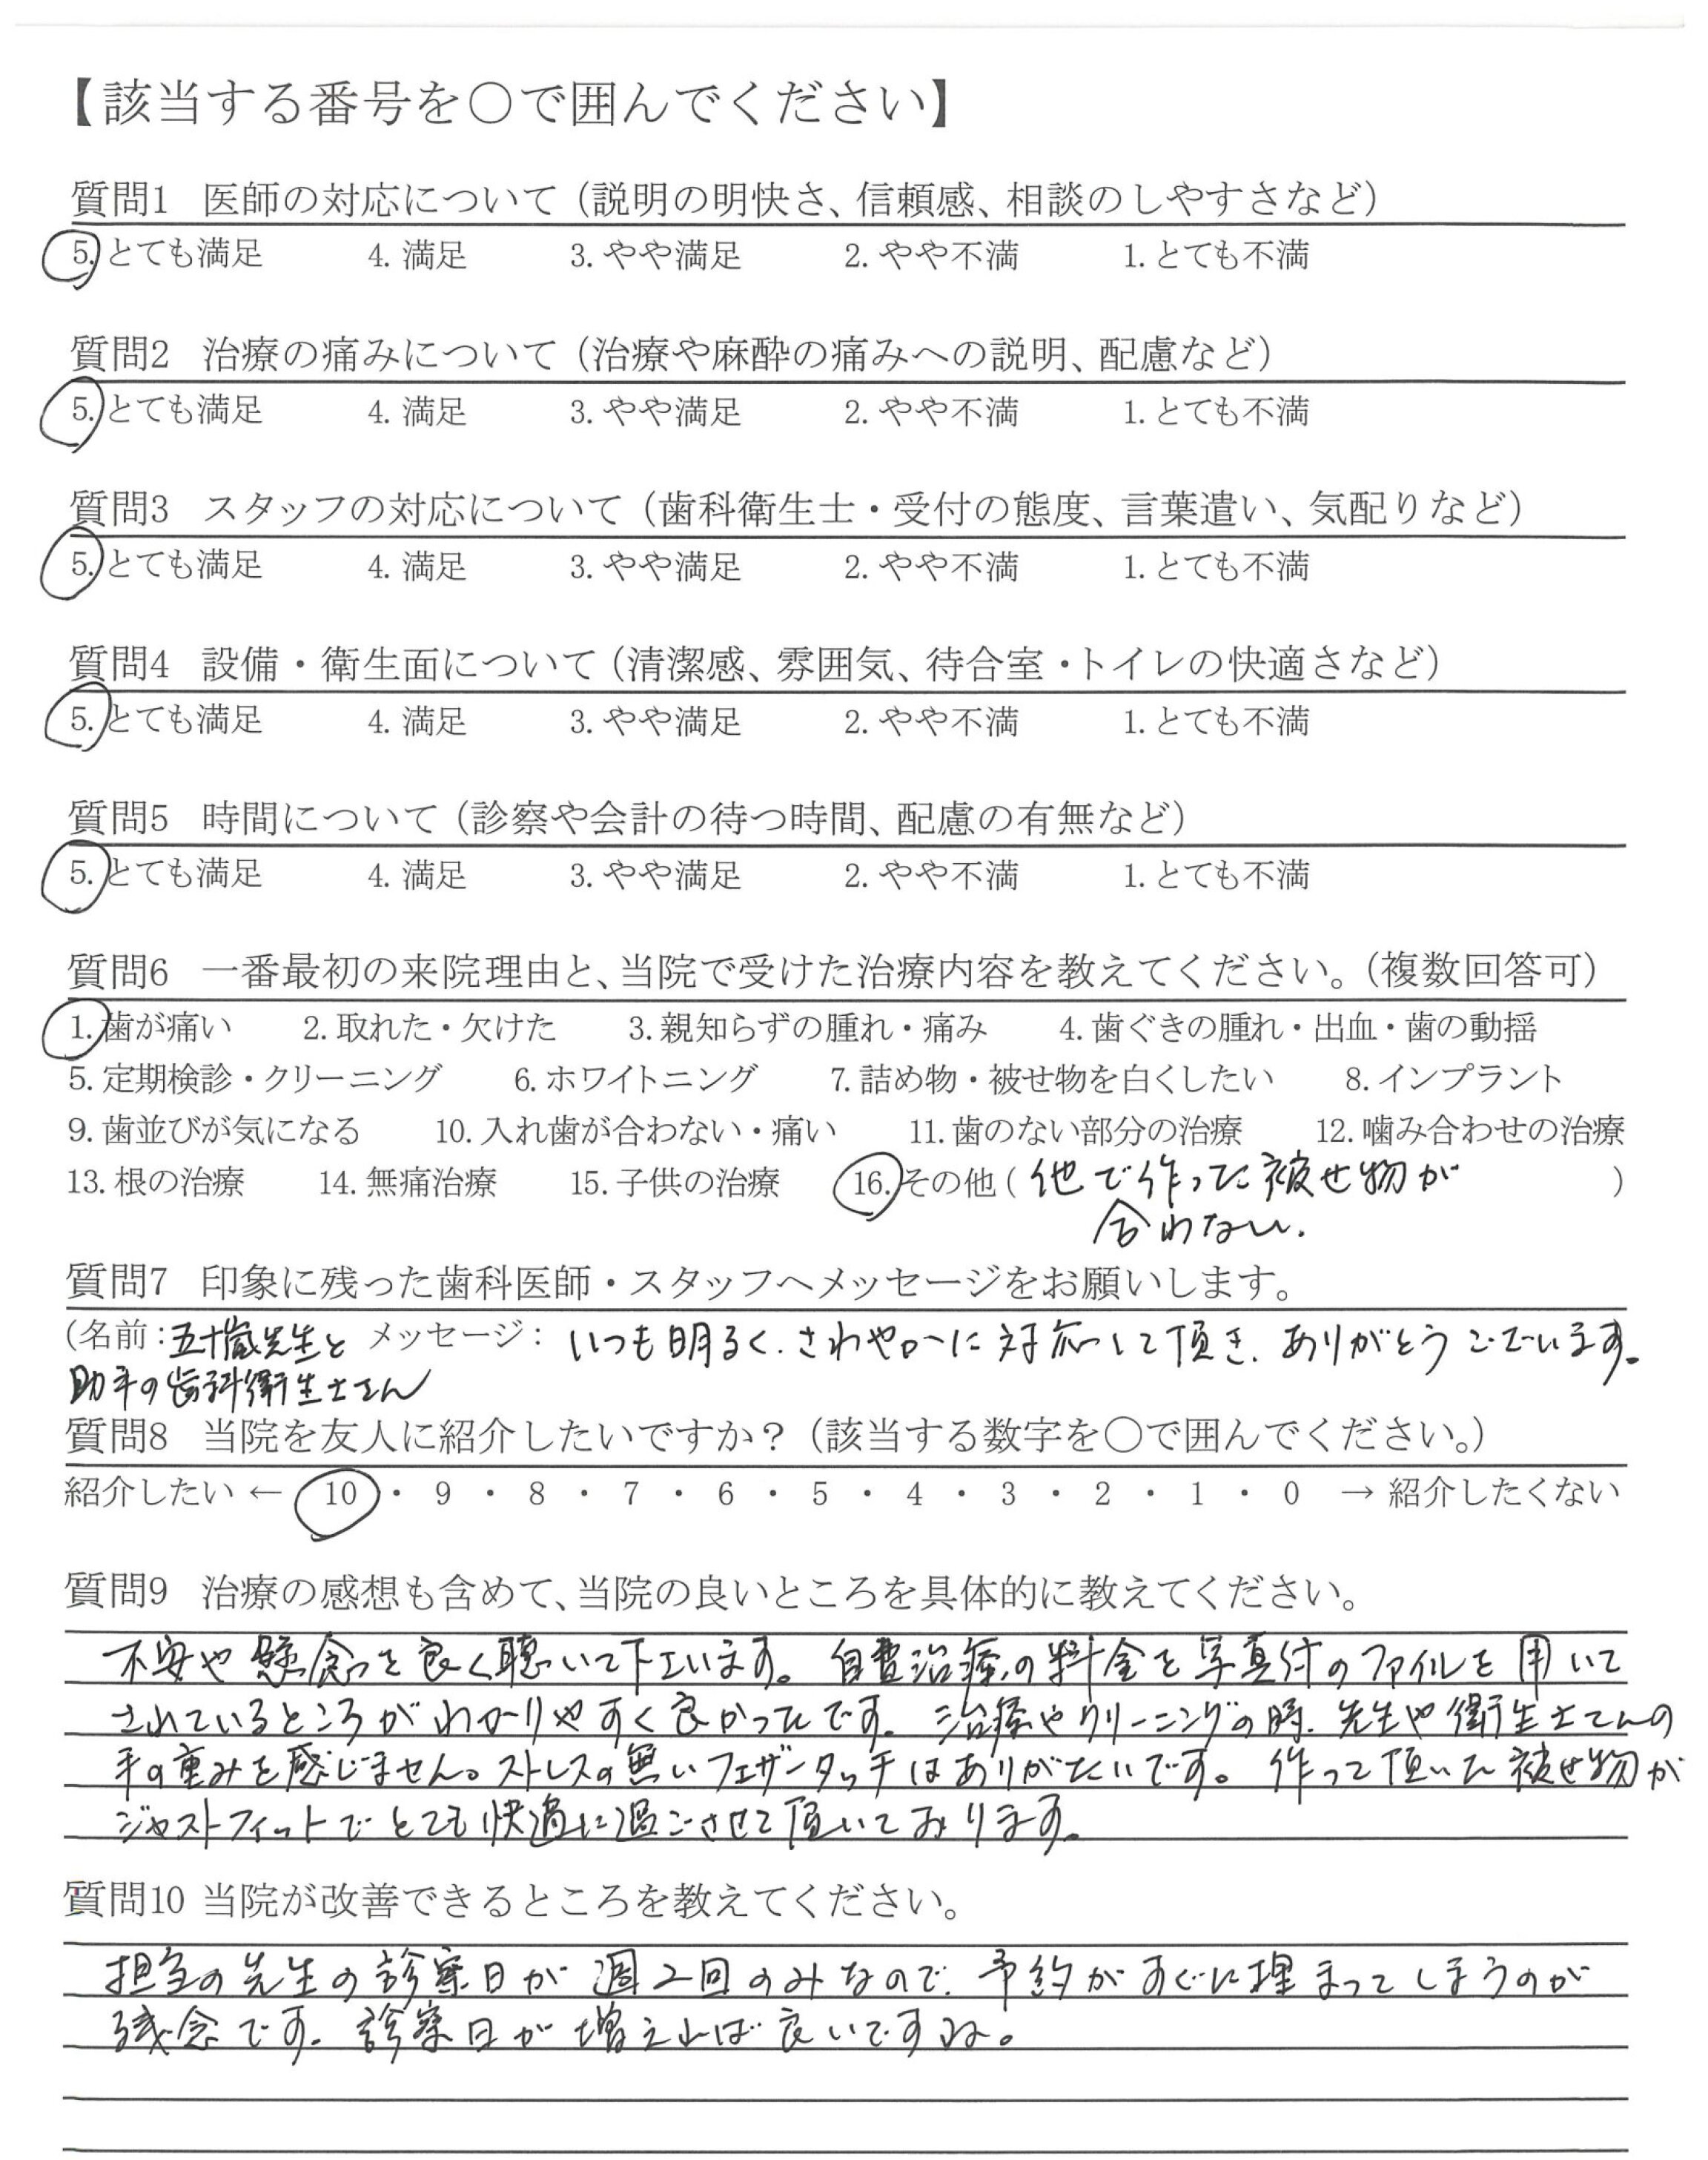 【該当する番号を○で囲んでください】
質問1 医師の対応について（説明の明快さ、信頼感、相談のしやすさなど）
5. とても満足 4. 満足 3. やや満足 2. やや不満 1. とても不満
質問2 治療の痛みについて（治療や麻酔の痛みへの説明、配慮など）
5. とても満足 4. 満足 3. やや満足 2. やや不満 1. とても不満
質問3 スタッフの対応について（歯科衛生士・受付の態度、言葉遣い、気配りなど）
5. とても満足 4. 満足 3. やや満足 2. やや不満 1. とても不満
質問4 設備・衛生面について（清潔感、雰囲気、待合室・トイレの快適さなど）
5. とても満足 4. 満足 3. やや満足 2. やや不満 1. とても不満
質問5 時間について（診察や会計の待つ時間、配慮の有無など）
5. とても満足 4. 満足 3. やや満足 2. やや不満 1. とても不満
質問6 一番最初の来院理由と、当院で受けた治療内容を教えてください。（複数回答可）
1. 歯が痛い 2. 取れた・欠けた 3. 親知らずの腫れ・痛み 4. 歯ぐきの腫れ・出血・歯の動揺
5. 定期検診・クリーニング 6. ホワイトニング 7. 詰め物・被せ物を白くしたい 8. インプラント
9. 歯並びが気になる 10. 入れ歯が合わない・痛い 11. 歯のない部分の治療 12. 噛み合わせの治療
13. 根の治療 14. 無痛治療 15. 子供の治療 16. その他（他で作った被せ物が ）
合わない.
質問7 印象に残った歯科医師・スタッフへメッセージをお願いします。
（名前：五十嵐先生と メッセージ： いつも明るく、さわやかに対応して頂き、ありがとうございます。
助手の歯科衛生士さん
質問8 当院を友人に紹介したいですか？（該当する数字を○で囲んでください。）
紹介したい ← 10 ・ 9 ・ 8 ・ 7 ・ 6 ・ 5 ・ 4 ・ 3 ・ 2 ・ 1 ・ 0 → 紹介したくない
質問9 治療の感想も含めて、当院の良いところを具体的に教えてください。
不安や懸念を良く聴いて下さいます。自費治療の料金を写真付のファイルを用いて
されているところがわかりやすく良かったです。治療やクリーニングの時、先生や衛生士さんの
手の重みを感じません。ストレスの無いフェザータッチはありがたいです。作って頂いた被せ物が
ジャストフィットでとても快適に過ごさせて頂いております。
質問10 当院が改善できるところを教えてください。
担当の先生の診察日が週2回のみなので、予約がすぐに埋まってしまうのが
残念です。診察日が増えれば良いですね。